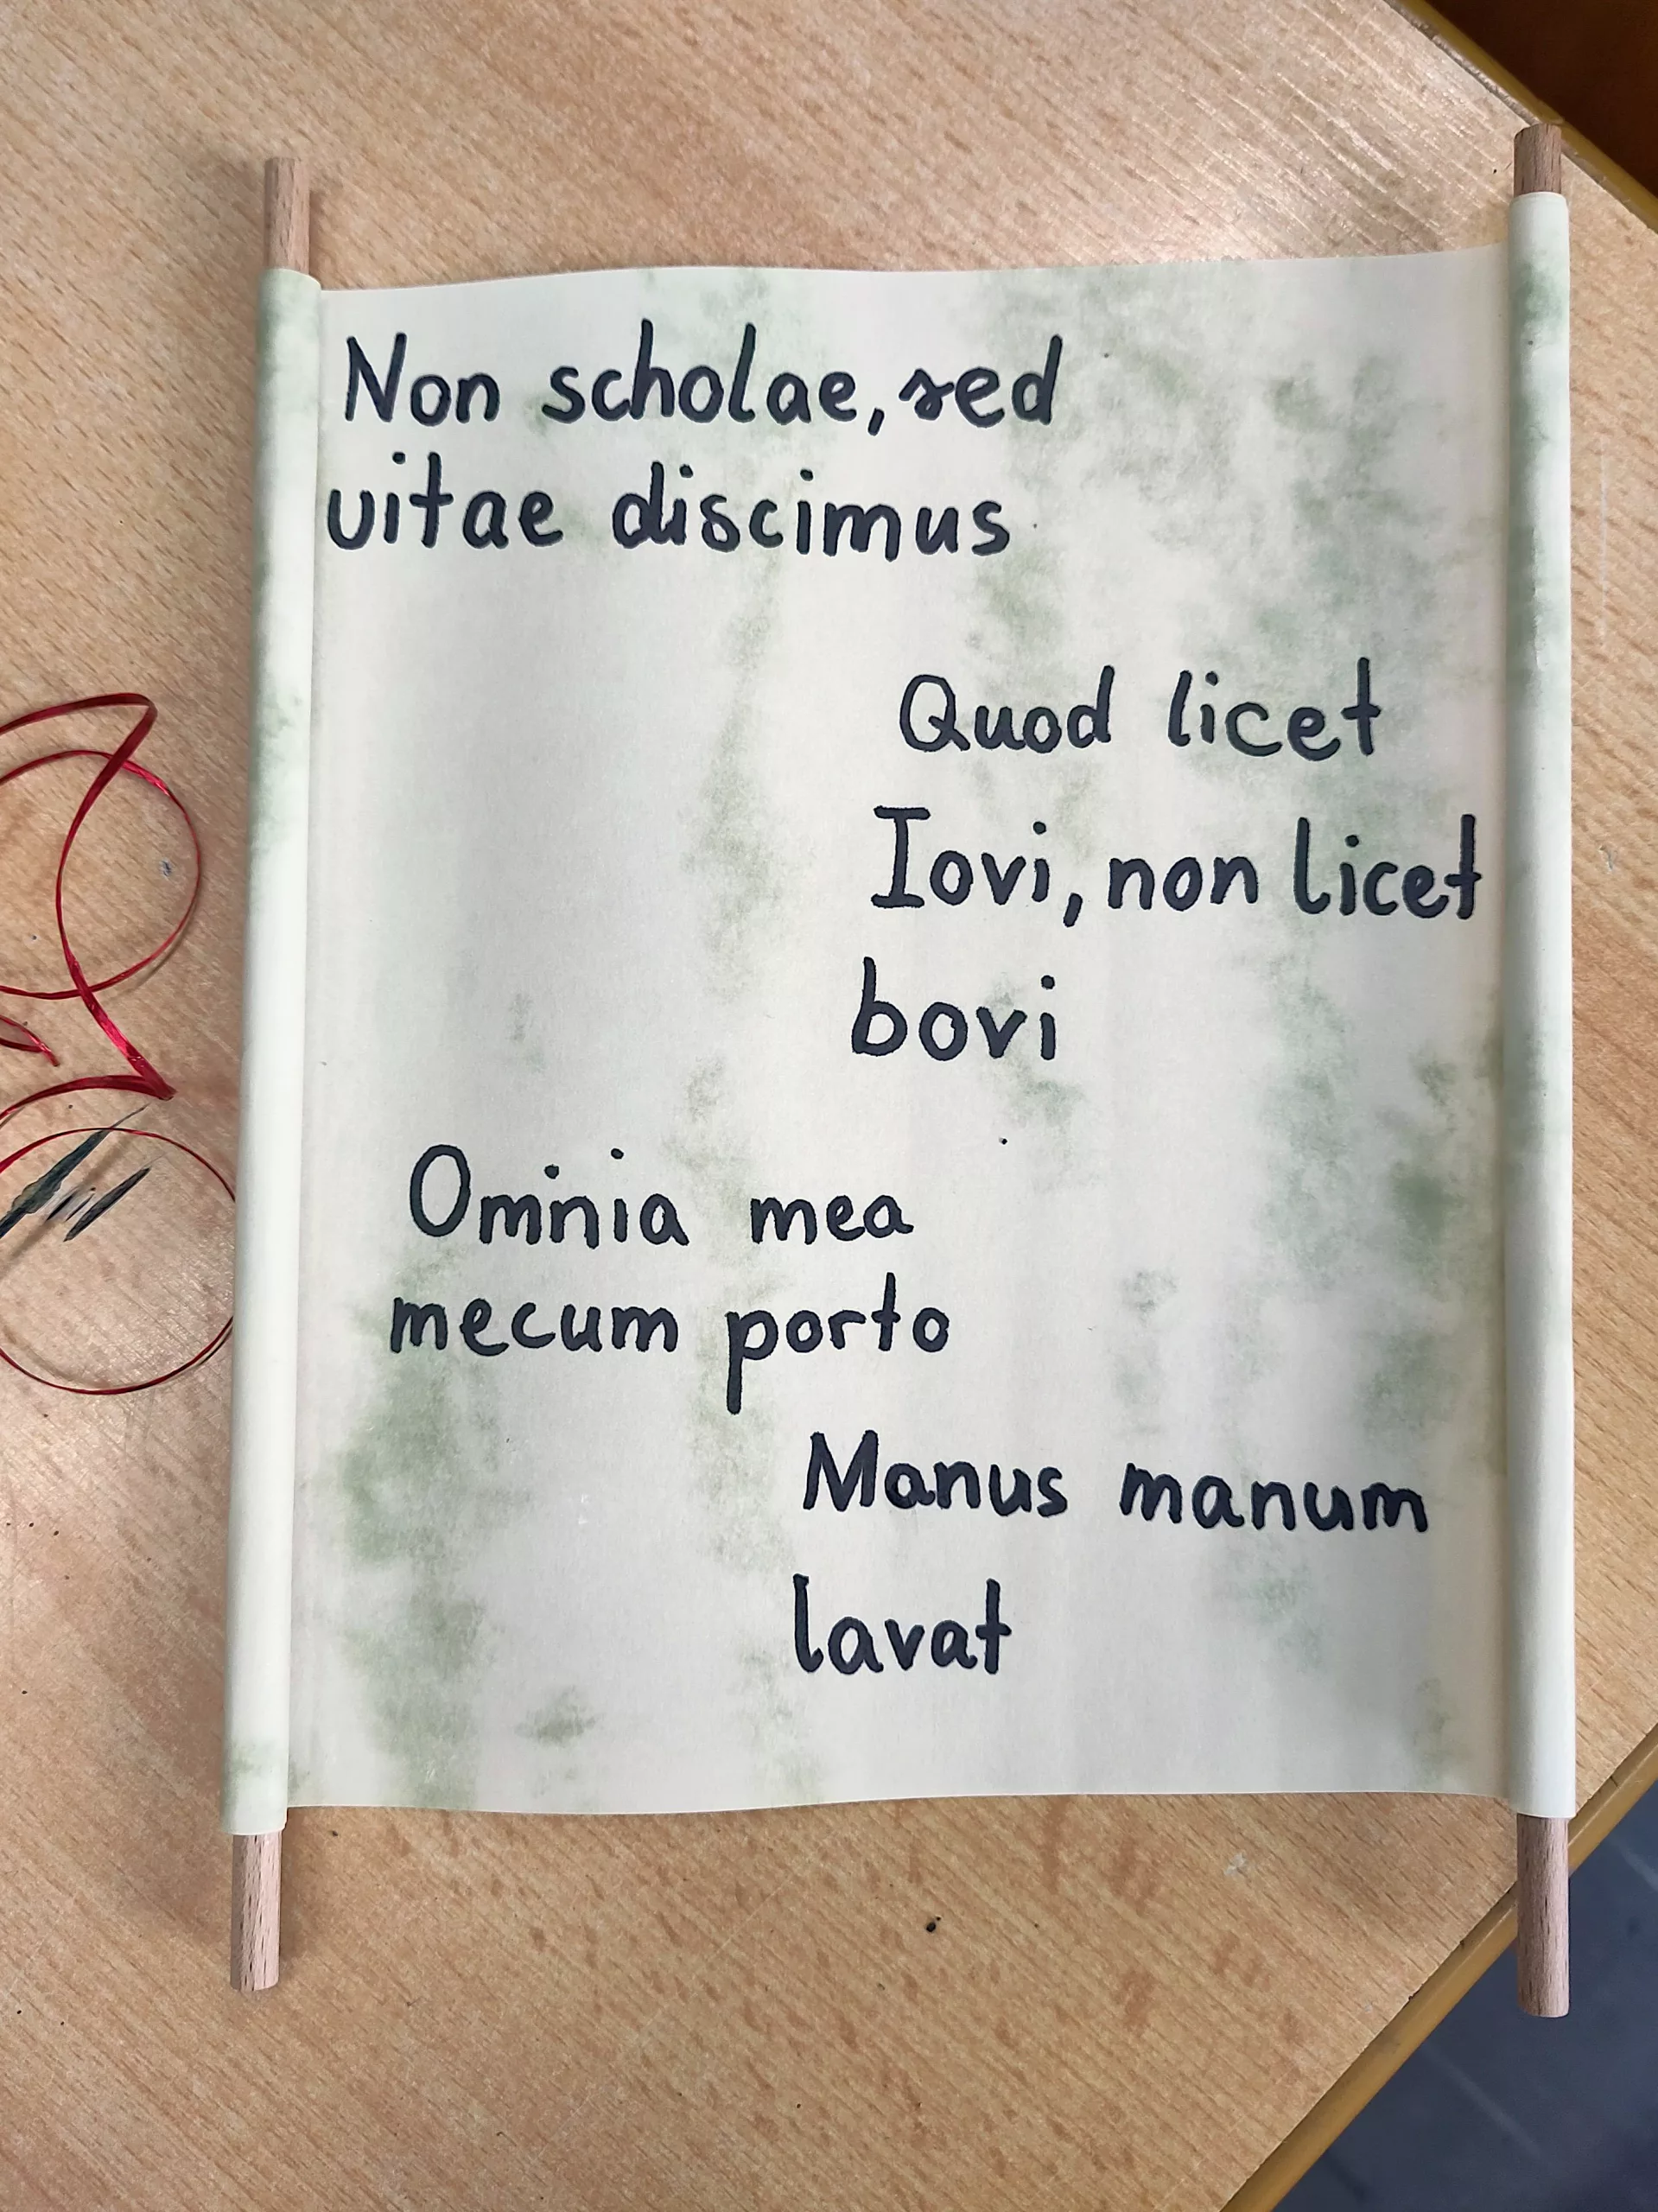 Non scholae, sed
vitae discimus
Quod licet
Iovi, non licet
bovi
Omnia mea
mecum porto
Manus manum
lavat